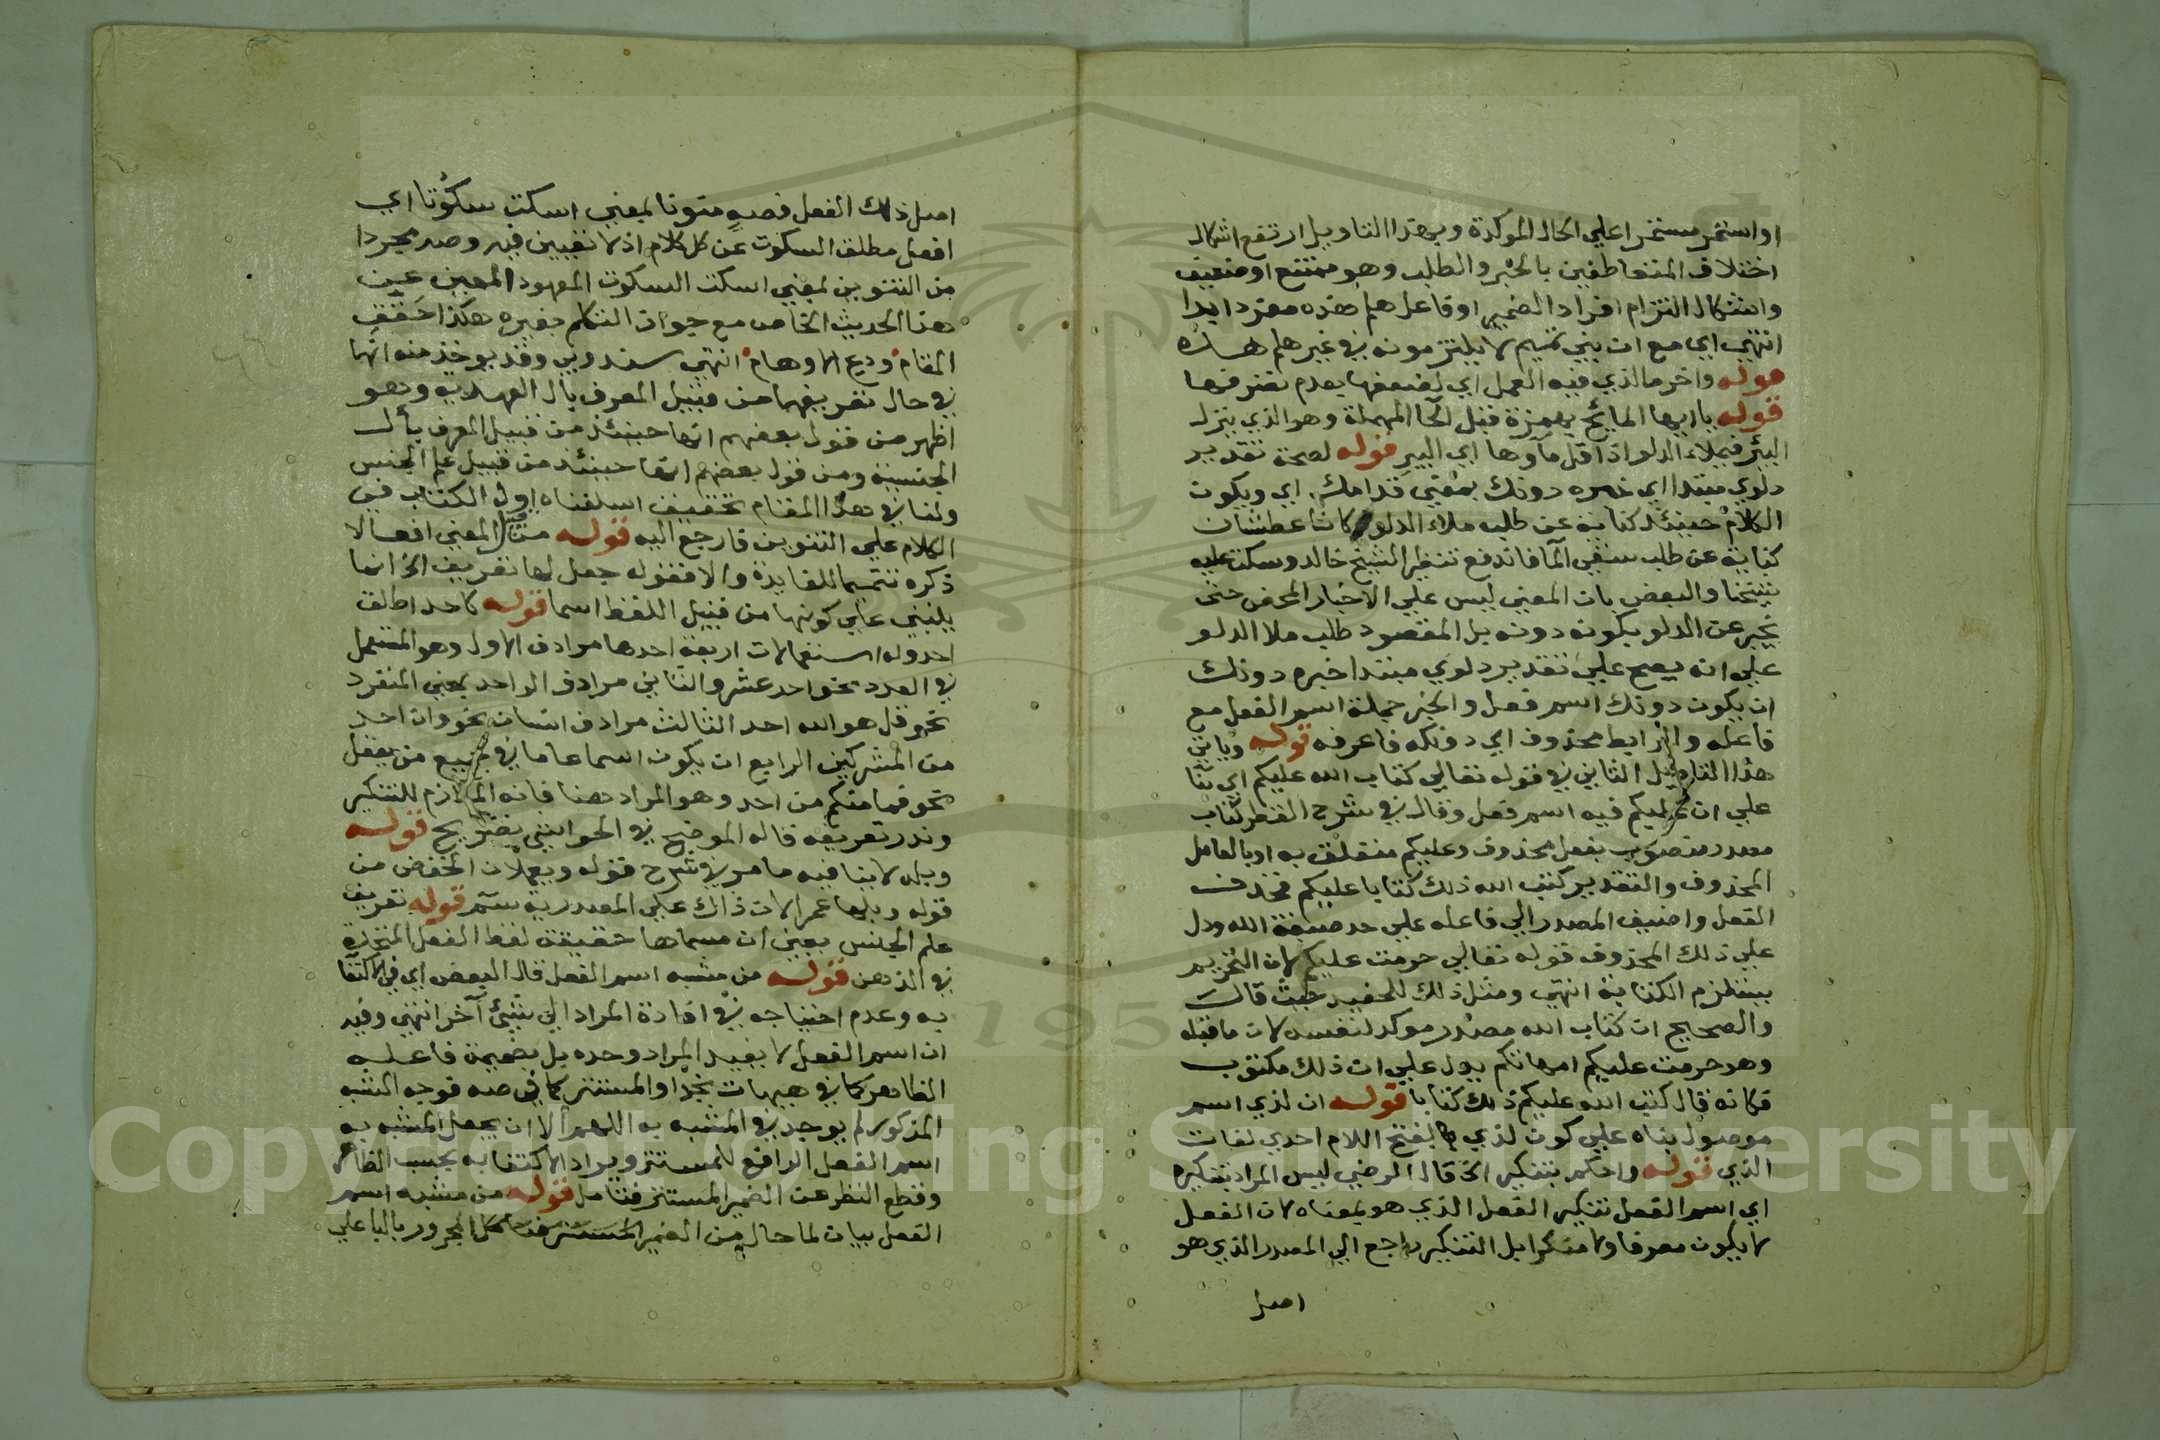 او استمر مستمرا علي الحال الموكدة وبهذا التاويل ارتفع اشكال
اختلاف المتعاطفين بالخبر والطلب وهو ممتنع او ضعيف
واشكال التزام افراد الضمير اوفاعل هلم هذه مفرد ابدا
انتهي اي مع ان بني تميم لا يلتزمونه في غير هلم هذه
قوله واخر ما لذي فيه العمل اي لضعفها بعدم تصرفها
قوله يا ايها المائح بهمزة قبل الحا المهملة وهو الذي ينزل
البئر فيملاء الدلو اذا قل ماوها اي البير قوله لصحة تقدير
دلوي مبتدا اي خبره دونك بمعني قدامك اي ويكون
الكلام حينئذ كناية عن طلب ملاء الدلو كانا عطشان
كناية عن طلب سقي الما فاندفع تنظير الشيخ خالد وسكت عليه
شيخنا والبعض بان المعني ليس علي الاخبار المحض حتي
يخبر عن الدلو بكونه دونه بل المقصود طلب ملا الدلو
علي انه يصح علي تقدير دلوي مبتدا خبره دونك
ان يكون دونك اسم فعل والخبر جملة اسم الفعل مع
فاعله والرابط محذوف اي دونكه فاعرفه قوله وياتي
هذا التاويل الثاني في قوله تعالي كتاب الله عليكم اي بنا
علي ان عليكم فيه اسم فعل وقال في شرح القطر كتاب
مصدر منصوب بفعل محذوف وعليكم متعلق به او بالعامل
المحذوف والتقدير كتب الله ذلك كتابا عليكم فحذف
الفعل واضيف المصدر الي فاعله علي حد صبغة الله ودل
علي ذلك المحذوف قوله تعالي حرمت عليكم لان التحريم
يستلزم الكتابة انتهي ومثل ذلك للحفيد حيث قال
والصحيح ان كتاب الله مصدر موكد لنفسه لان ما قبله
وهو حرمت عليكم امهاتكم يدل علي ان ذلك مكتوب
فكانه قال كتب الله عليكم ذلك كتابا قوله ان لذي اسم
موصول بناه علي كون لذي بفتح اللام احدي لغات
الذي قوله واحكم بتنكير الخ قال الرضي ليس المراد بتنكيره
اي اسم الفعل تنكير الفعل الذي هو بمعناه لان الفعل
لا يكون معرفا ولا منكرا بل التنكير راجع الي المصدر الذي هو
اصل
اصل ذلك الفعل فصه منونا بمعني اسكت سكوتا اي
افعل مطلق السكوت عن كل كلام اذ لا تعيين فيه وصه مجردا
من التنوين بمعني اسكت السكوت المعهود المعين عين
هذا الحديث الخاص مع جواز التكلم بغيره هكذا حقق
المقام ودع الاوهام انتهي سندوبي وقد يوخذ منه انها
في حال تعريفها من قبيل المعرف بال العهدية وهو
اظهر من قول بعضهم انها حينئذ من قبيل المعرف بأل
الجنسية ومن قول بعضهم انها حينئذ من قبيل علم الجنس
ولنا في هذا المقام تحقيق اسلفناه اول الكتاب في
الكلام علي التنوين فارجع اليه قوله من قبل المعني افعالا
ذكره تتميما للفايدة والا فقوله جعل لها تعريف الخ انما
يبتني علي كونها من قبيل اللفظ اسما قوله كاحد اطلق
احد وله استعمالات اربعة احدها مرادف الاول وهو المستعمل
في العدد نحو احد عشر والثاني مرادف الواحد بمعني المنفرد
نحو قل هو الله احد الثالث مرادف انسان نحو وان احد
من المشركين الرابع ان يكون اسما عاما في جميع من يعقل
نحو فما منكم من احد وهو المراد هنا فانه الملازم للتنكير
وندر تعريفه قاله الموضح في الحواشي تصريح قوله
وبله لا ينافيه ما مر في شرح قوله ويعملان الخفض من
قوله وبلها عمر لان ذاك علي المصدرية سم قوله تعريف
علم الجنس بمعني ان مسماها حقيقة لفظ الفعل المتحدة
في الذهن قوله من مشبه اسم الفعل قال البعض اي في الاكتفا
به وعدم احتياجه في افادة المراد الي شيئ آخر انتهي وفيه
ان اسم الفعل لا يفيد المراد وحده بل بضميمة فاعله
الظاهر كما في هيهات نجد او المستتر كما في صه فوجه الشبه
المذكور لم يوجد في المشبه به اللهم الا ان يجعل المشبه به
اسم الفعل الرافع للمستتر ويراد الاكتفا به بحسب الظاهر
وقطع النظر عن الضمير المستتر فتامل قوله من مشبه اسم
الفعل بيان لما حال من الضمير المستتر في المجرور بالبا علي
Copyright © King Saud University
1957